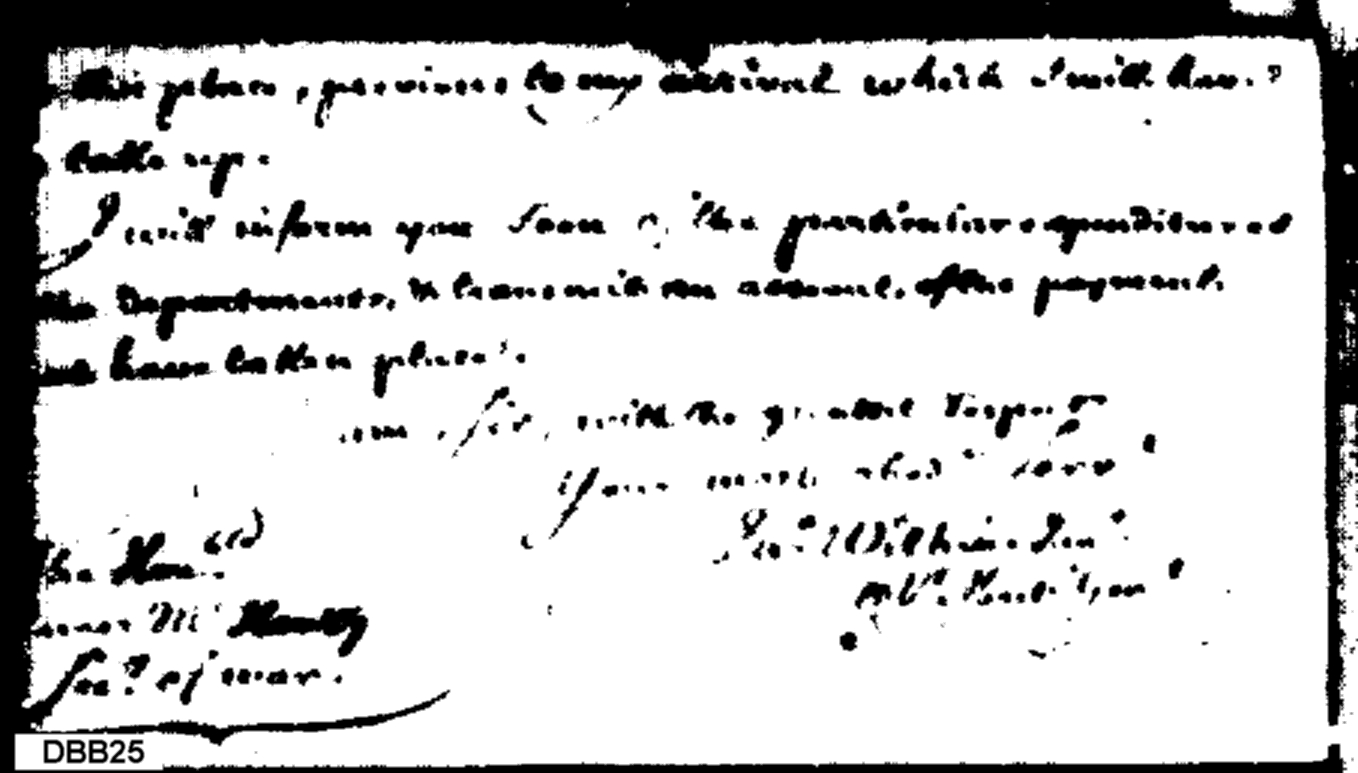 this place, previous to my arrival which I will have
take up.
I will inform you soon of the particular expenditures
the Departments, & transmit an account, of the payment
have taken place.
am, Sir, with the greatest Respect
Your most obed Serv
Jno Wilkins Jun
The Hon
James Mc Henry
Sec of war.
DBB25